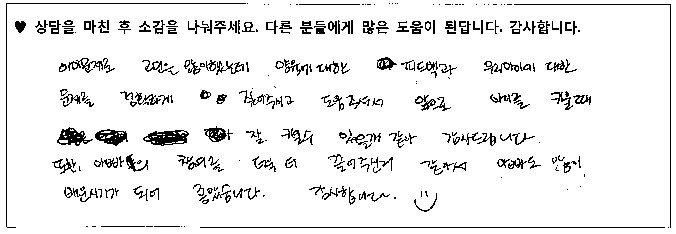 ♥ 상담을 마친 후 소감을 나눠주세요. 다른 분들에게 많은 도움이 된답니다. 감사합니다.
고민은 많이했는데 양육에 대한 피드백과 우리아이에 대한
문제를 정확하게 집어주시고 도움주셔서 앞으로 아이를 키울때
잘 키울수 있을거 같아 감사드립니다.
또한, 아빠의 참여를 더욱 더 끌어주신거 같아서 아빠도 많이
배운시기가 되어 좋았습니다. 감사합니다~